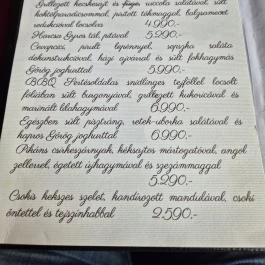 Grillezett kecskesajt és friss ruccola salátával, sült
koktélparadicsommal, pirított tökmaggal, balzsamecet
redukcióval locsolva 4.990.-
Harcsa Gyros tál, pitával 5.290.-
Cevapcici, pirult lepénnyel, sopszka saláta
dekonstrukcióval, hagy ajvárral és sült fokhagymás
Görög joghurttal 5.990.-
BBQ Sertésoldalas snidlinges tejföllel locsolt
fóliában sült burgonyával, grillezett kukoricával és
marinált lilahagymával 6.990.-
Egészben sült pisztráng, retek-uborka salátával és
kapros Görög joghurttal 6.990.-
Pikáns csirkeszárnyak, kéksajtos mártogatóval, angol
zellerrel, égetett újhagymával és szezámmaggal
5.290.-
Csokis kekszes szelet, kandírozott mandulával, csoki
öntettel és tejszínhabbal 2.590.-